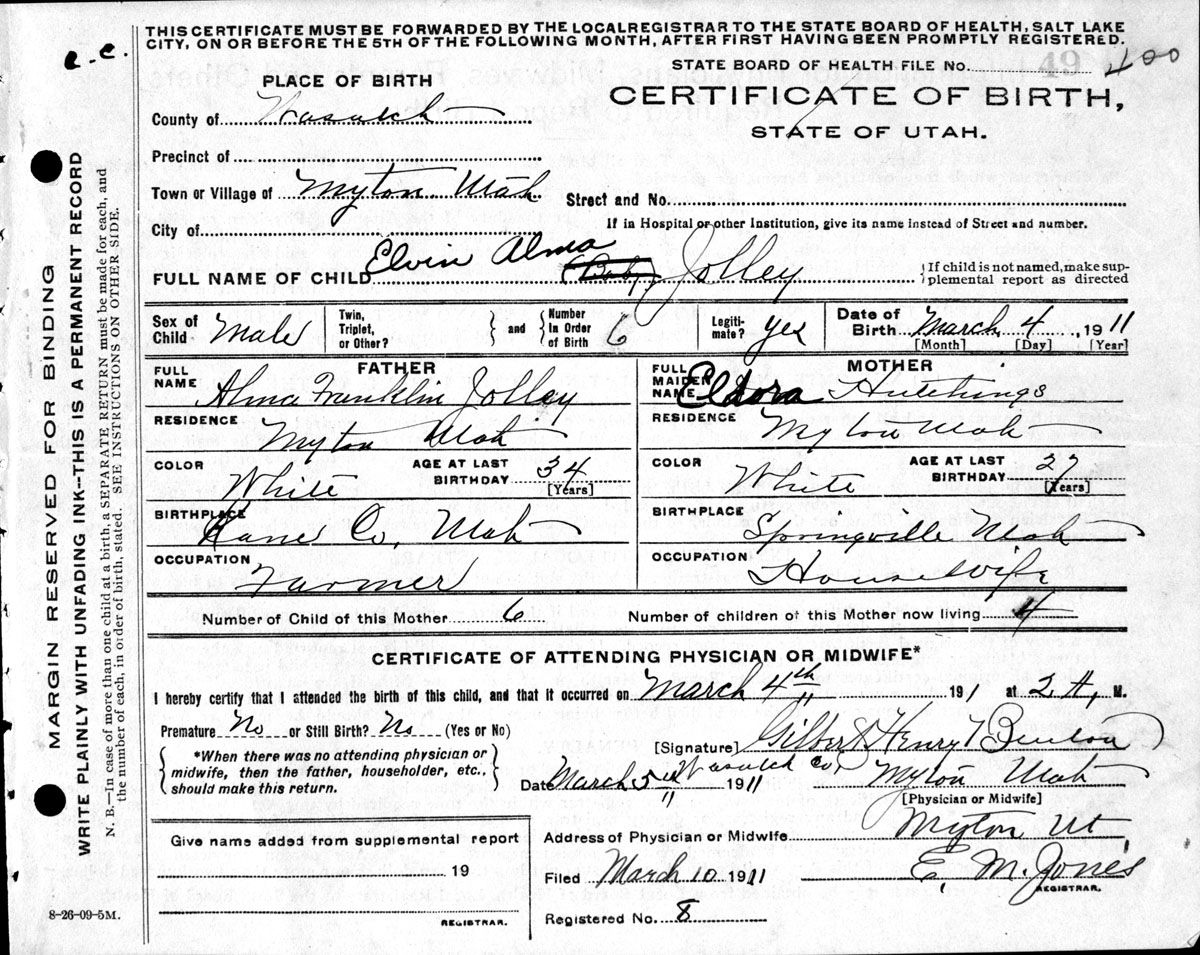 THIS CERTIFICATE MUST BE FORWARDED BY THE LOCALREGISTRAR TO THE STATE BOARD OF HEALTH, SALT LAKE
CITY, ON OR BEFORE THE 5TH OF THE FOLLOWING MONTH, AFTER FIRST HAVING BEEN PROMPTLY REGISTERED.
STATE BOARD OF HEALTH FILE No. 49 400
PLACE OF BIRTH
CERTIFICATE OF BIRTH,
STATE OF UTAH.
County of Wasatch
Precinct of
Town or Village of Myton Utah
Street and No.
City of
If in Hospital or other Institution, give its name instead of Street and number.
FULL NAME OF CHILD Elvin Alma (Baby) Jolley
If child is not named, make sup-
plemental report as directed
Sex of Child Male
Twin, Triplet, or Other?
and
Number In Order of Birth 6
Legiti-mate? Yes
Date of Birth March 4, 1911
[Month] [Day] [Year]
FATHER
FULL NAME Alma Franklin Jolley
RESIDENCE Myton Utah
COLOR White
AGE AT LAST BIRTHDAY 34
[Years]
BIRTHPLACE Kane Co, Utah
OCCUPATION Farmer
MOTHER
FULL MAIDEN NAME Eldora Hutchings
RESIDENCE Myton Utah
COLOR White
AGE AT LAST BIRTHDAY 27
[Years]
BIRTHPLACE Springville Utah
OCCUPATION Housewife
Number of Child of this Mother 6
Number of children of this Mother now living 4
CERTIFICATE OF ATTENDING PHYSICIAN OR MIDWIFE*
I hereby certify that I attended the birth of this child, and that it occurred on March 4th 11 191 at 2 A, M.
Premature No or Still Birth? No (Yes or No)
[Signature] Gilbert Henry Benton
*When there was no attending physician or
midwife, then the father, householder, etc.,
should make this return.
Date March 5 11 1911
Wasatch Co, Myton Utah
[Physician or Midwife]
Give name added from supplemental report
19
REGISTRAR.
Address of Physician or Midwife Myton Ut
Filed March 10 1911
E. M. Jones
REGISTRAR.
Registered No. 8
8-26-09-5M.
MARGIN RESERVED FOR BINDING
WRITE PLAINLY WITH UNFADING INK--THIS IS A PERMANENT RECORD
N. B.—In case of more than one child at a birth, a SEPARATE RETURN must be made for each, and
the number of each, in order of birth, stated. SEE INSTRUCTIONS ON OTHER SIDE.